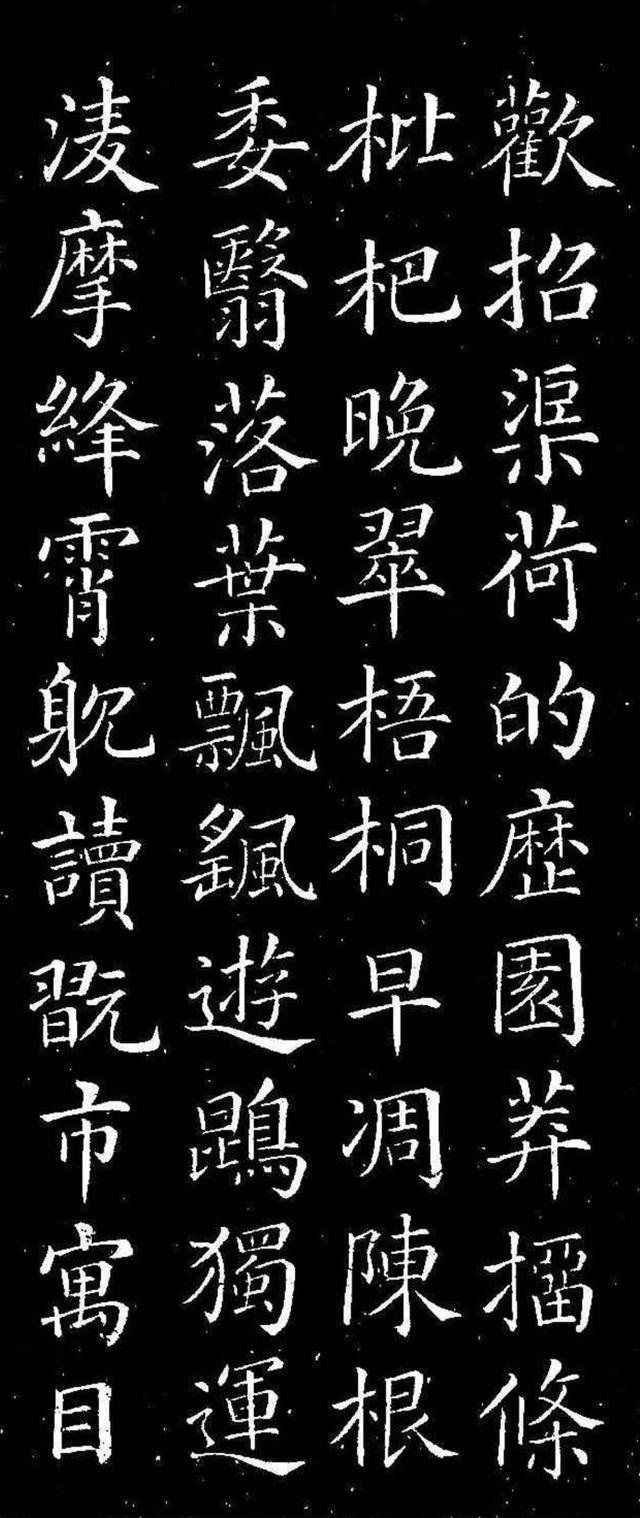 歡招渠荷的歷園莽㨨條
枇杷晚翠梧桐早凋陳根
委翳落葉飄颻遊鵾獨運
淩摩絳霄躭讀翫市寓目